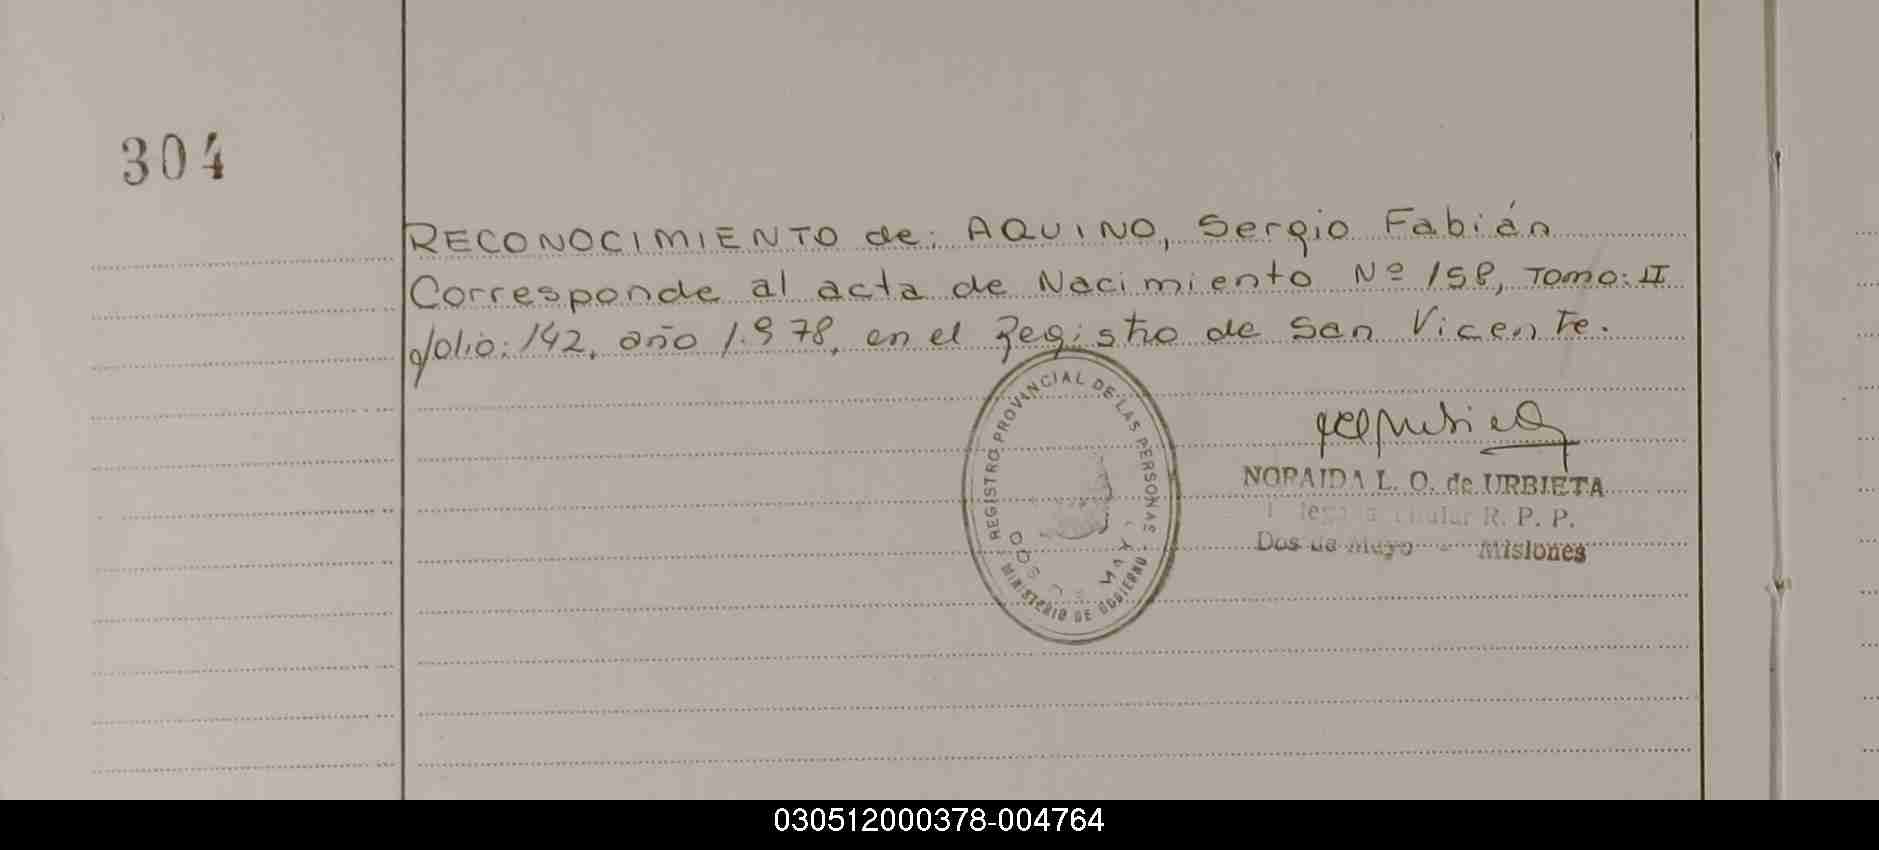 304
RECONOCIMIENTO de: AQUINO, Sergio Fabián
Corresponde al acta de Nacimiento Nº 158, Tomo: II
folio: 142, año 1.978, en el Registro de San Vicente.
REGISTRO PROVINCIAL DE LAS PERSONAS
MINISTERIO DE GOBIERNO
DOS MAY
NORAIDA L. O. de URBIETA
Titular R. P. P.
Dos de Mayo - Misiones
030512000378-004764